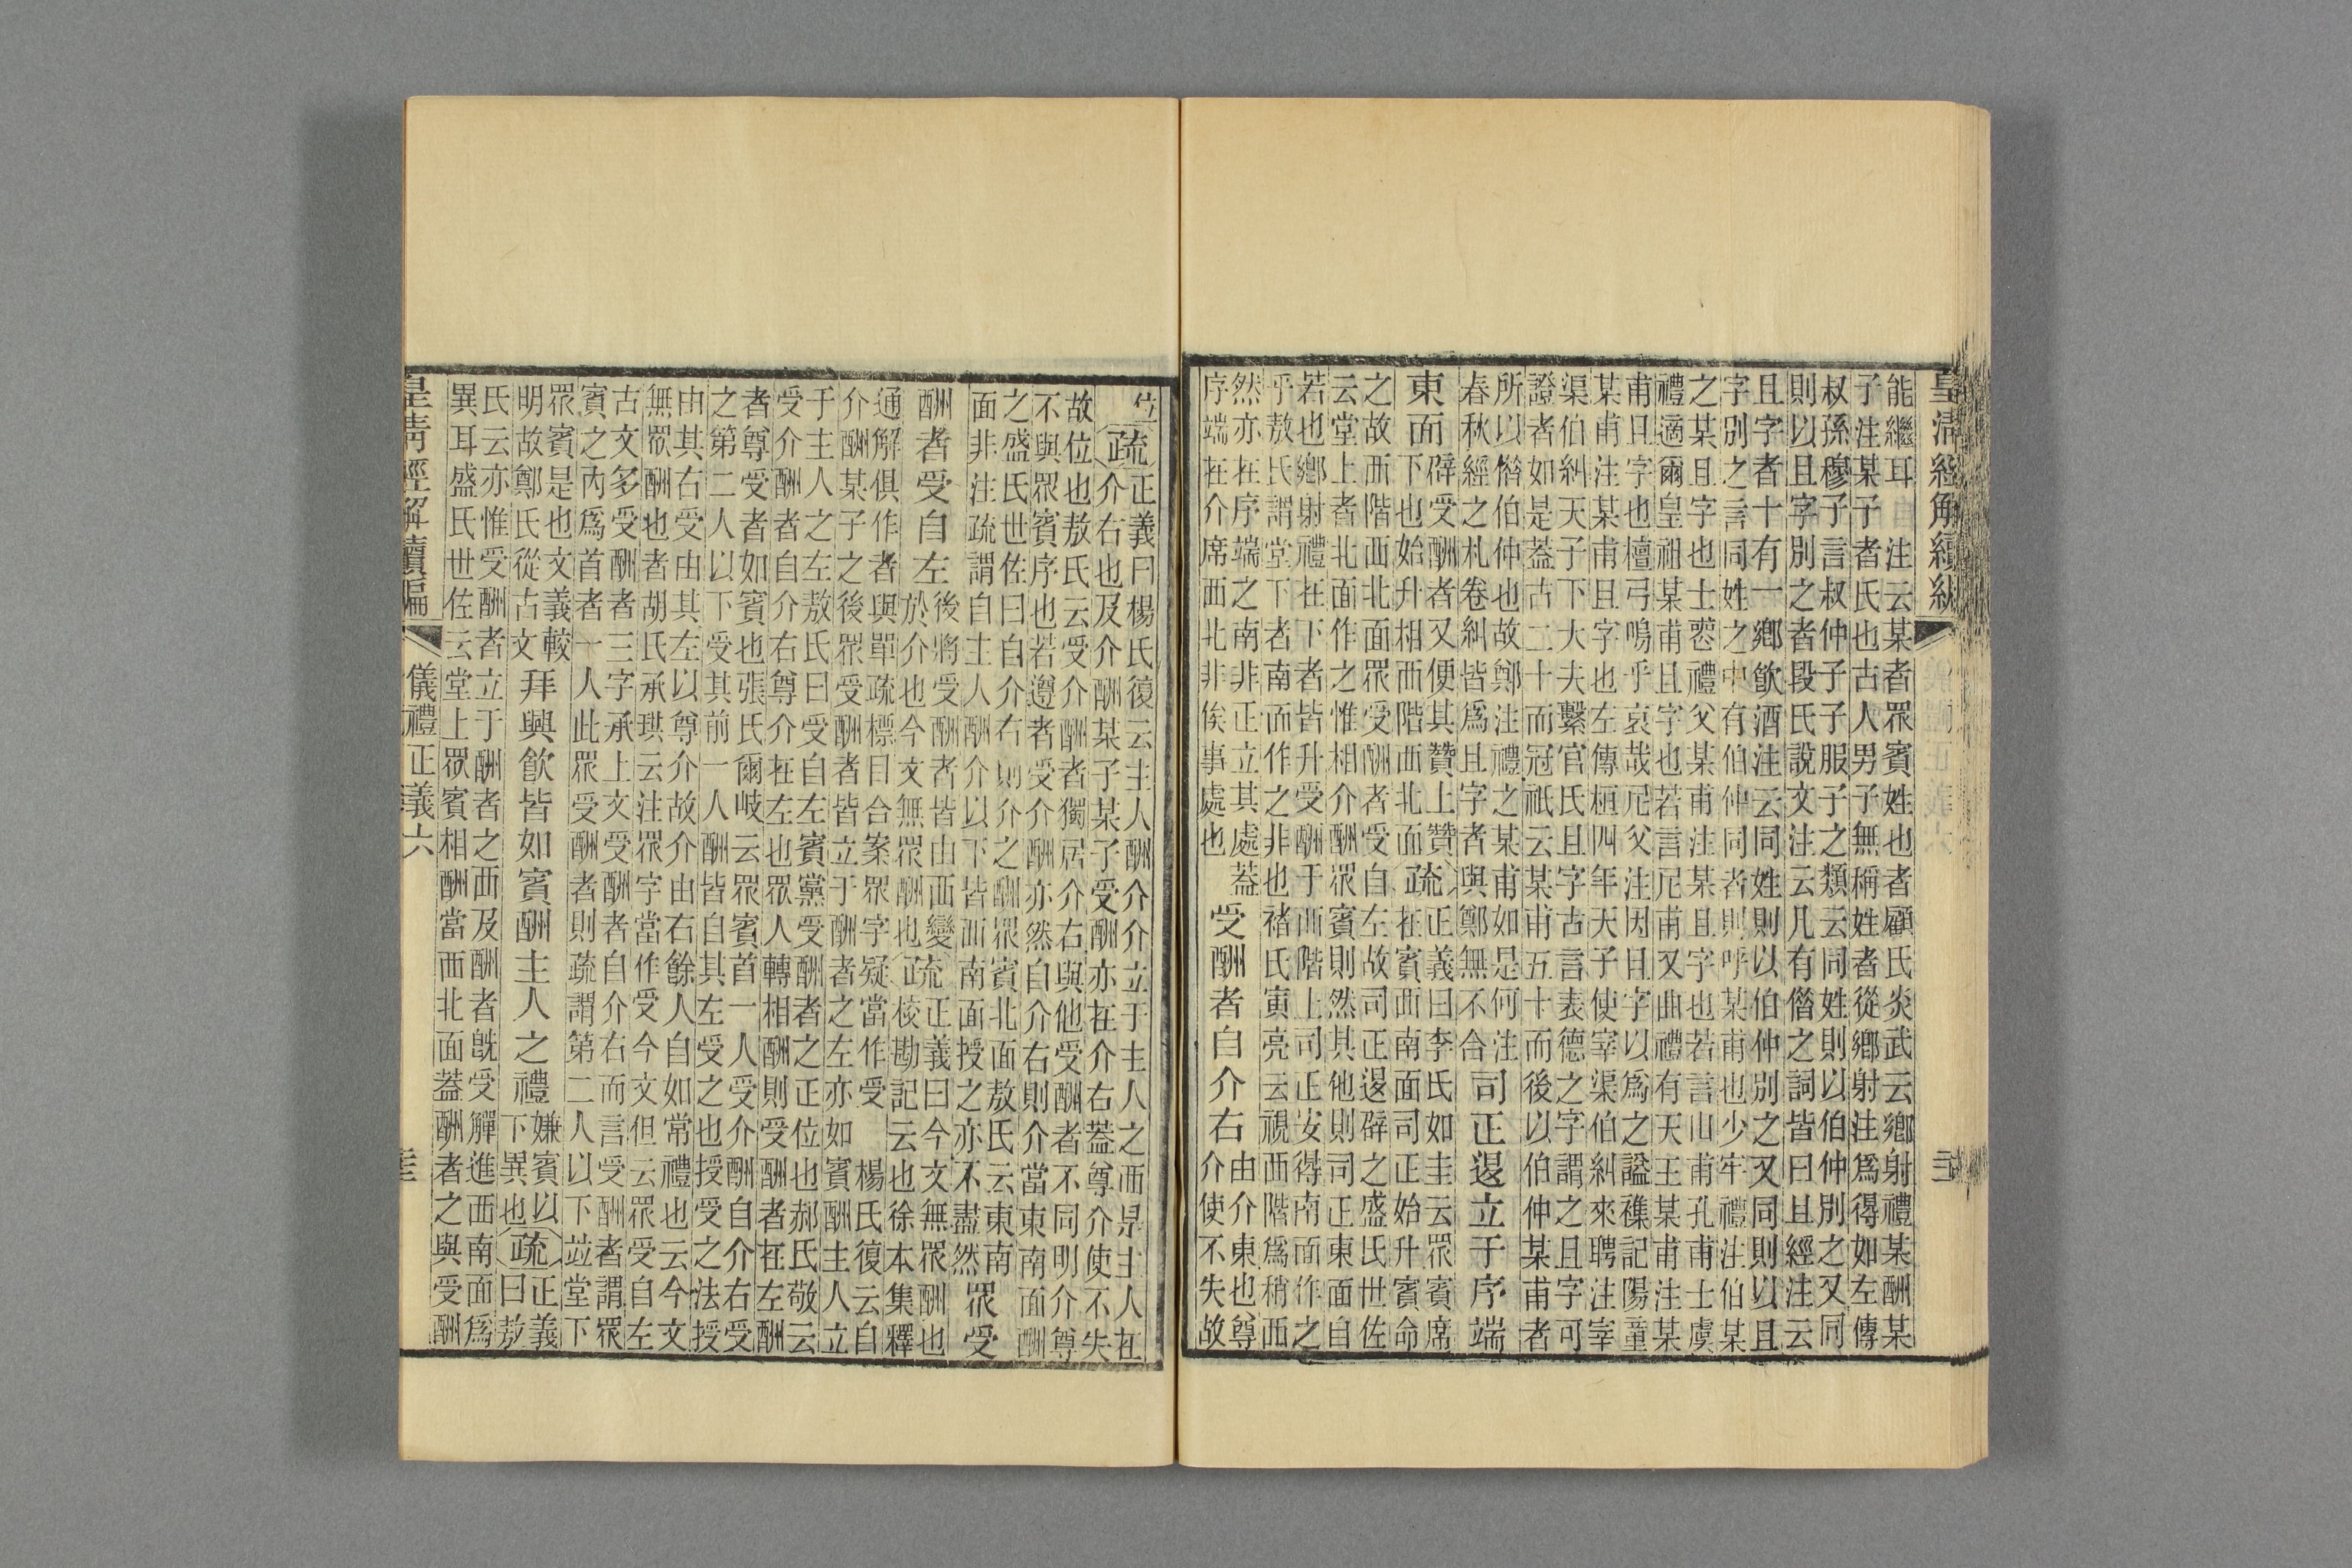 皇清經解續編
能繼耳注云某者眾賓姓也者顧氏炎武云鄉射禮某酬某
子注某子者氏也古人男子無稱姓者從鄉射注爲得如左傳
叔孫穆子言叔仲子子服子之類云同姓則以伯仲別之又同
則以且字別之者段氏說文注云凡有僭之詞皆曰且經注云
且字者十有一鄉飲酒注云同姓則以伯仲別之又同則以且
字別之言同姓之中有伯仲同者則呼某甫也少牢禮注伯某
之某且字也士喪禮父某甫注某且字也若言山甫孔甫士虞
禮適爾皇祖某甫且字也若言尼甫又曲禮有天王某甫注某
甫且字也檀弓嗚乎哀哉尼父注因且字以爲之謚襍記陽童
某甫注某甫且字也左傳桓四年天子使宰渠伯糾來聘注宰
渠伯糾天子下大夫繫官氏且字古言表德之字謂之且字可
證者如是蓋古二十而冠祇云某甫五十而後以伯仲某甫者
所以僭伯仲也故鄭注禮之某甫如是何注
春秋經之札卷糾皆爲且字者與鄭無不合
司正退立于序端
東面
辟受酬者又便其贊上贊
下也始升相西階西北面
疏
正義曰李氏如圭云眾賓席
在賓西南面司正始升賓命
之故西階西北面眾受酬者受自左故司正退辟之盛氏世佐
云堂上者北面作之惟相介酬眾賓則然其他則司正東面自
若也鄉射禮在下者皆升受酬于西階上司正安得南面作之
乎敖氏謂堂下者南面作之非也褚氏寅亮云視西階爲稍西
然亦在序端之南非正立其處蓋
序端在介席西北非俟事處也
受酬者自介右
由介東也尊
介使不失故
位
疏
正義曰楊氏復云主人酬介介立于主人之西是主人在
介右也及介酬某子某子受酬亦在介右蓋尊介使不失
故位也敖氏云受介酬者獨居介右與他受酬者不同明介尊
不與眾賓序也若遵者受介酬亦然自介右則介當東南面酬
之盛氏世佐曰自介右則介之酬眾賓北面敖氏云東南
面非注疏謂自主人酬介以下皆西南面授之亦不盡然
眾受
酬者受自左
後將受酬者皆由西變
於介也今文無眾酬也
疏
正義曰今文無眾酬也
校勘記云也徐本集釋
通解俱作者與單疏標目合案眾字疑當作受 楊氏復云自
介酬某子之後眾受酬者皆立于酬者之左亦如賓酬主人立
于主人之左敖氏曰受自左賓黨受酬者之正位也郝氏敬云
受介酬者自介右尊介在左也眾人轉相酬則受酬者在左酬
者尊受者如賓也張氏爾岐云眾賓首一人受介酬自介右受
之第二人以下受其前一人酬皆自其左受之也授受之法授
由其右受由其左以尊介故介由右餘人自如常禮也云今文
無眾酬也者胡氏承珙云注眾字當作受今文但云眾受自左
古文多受酬者三字承上文受酬者自介右而言受酬者謂眾
賓之內爲首者一人此眾受酬者則疏謂第二人以下並堂下
眾賓是也文義較
明故鄭氏從古文
拜興飲皆如賓酬主人之禮
嫌賓以
下異也
疏
正義
曰敖
氏云亦惟受酬者立于酬者之西及酬者旣受觶進西南面爲
異耳盛氏世佐云堂上眾賓相酬當西北面蓋酬者之與受酬
皇清經解續編
儀禮正義六